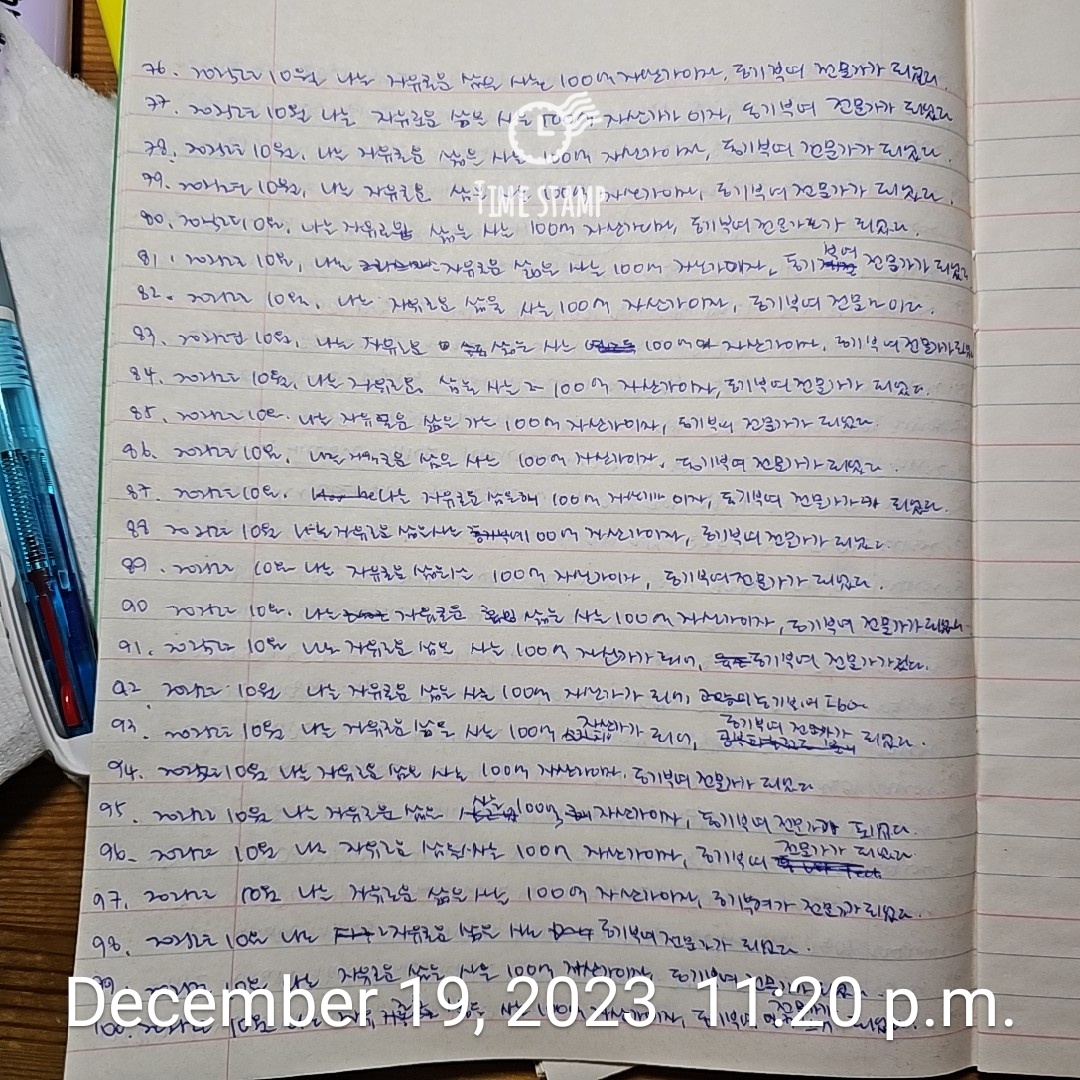 76. 2025년 10월 나는 자유로운 삶을 사는 100m 자산가이자, 동기부여 전문가가 되었다.
77. 2025년 10월 나는 자유로운 삶을 사는 100m 자산가가 이자, 동기부여 전문가가 되었다
78. 2025년 10월, 나는 자유로운 삶을 사는 100m 자산가이자, 동기부여 전문가가 되었다.
79. 2025년 10월, 나는 자유로운 삶을 사는 100m 자산가이자, 동기부여 전문가가 되었다.
TIME STAMP
80. 2025년 10월, 나는 자유로운 삶을 사는 100m 자산가이자, 동기부여 전문가가 되었다.
81. 2025년 10월, 나는 자유로운 삶을 사는 100m 자산가이자, 동기부여 전문가가 되었다
82. 2025년 10월, 나는 자유로운 삶을 사는 100m 자산가이자, 동기부여 전문가이다.
83. 2025년 10월, 나는 자유로운 삶을 사는 100m 자산가이자, 동기부여 전문가가 되었다
84. 2025년 10월, 나는 자유로운 삶을 사는 100m 자산가이자, 동기부여 전문가가 되었다.
85. 2025년 10월. 나는 자유로운 삶을 사는 100m 자산가이자, 동기부여 전문가가 되었다.
86. 2025년 10월, 나는 자유로운 삶을 사는 100m 자산가이자, 동기부여 전문가가 되었다
87. 2025년 10월. 나는 자유로운 삶을 100m 자산가 이자, 동기부여 전문가가 되었다.
88 2025년 10월 나는 자유로운 삶을 사는 100m 자산가이자, 동기부여 전문가가 되었다.
89. 2025년 10월 나는 자유로운 삶을 사는 100m 자산가이자, 동기부여 전문가가 되었다.
90 2025년 10월. 나는 자유로운 삶을 사는 100m 자산가이자, 동기부여 전문가가 되었다.
91. 2025년 10월 나는 자유로운 삶을 사는 100m 자산가가 되어, 동기부여 전문가가 되었다.
92 2025년 10월 나는 자유로운 삶을 사는 100m 자산가가 되어, 동기부여
93. 2025년 10월 나는 자유로운 삶을 사는 100m 자산가가 되어, 동기부여 전문가가 되었다.
94. 2025년 10월 나는 자유로운 삶을 사는 100m 자산가이자. 동기부여 전문가가 되었다
95. 2025년 10월 나는 자유로운 삶을 사는 100m 자산가이자, 동기부여 전문가가 되었다.
96. 2025년 10월 나는 자유로운 삶을 사는 100m 자산가이자, 동기부여 전문가가 되었다.
97. 2025년 10월 나는 자유로운 삶을 사는 100m 자산가이자, 동기부여가 전문가가 되었다.
98. 2025년 10월 나는 자유로운 삶을 사는 동기부여 전문가가 되었다.
99. 2025년 10월 나는 자유로운 삶을 사는 100m 자산가이자, 동기부여
December 19, 2023 11:20 p.m.
100. 2025년 10월 삶을 사는 100m 자산가이자, 동기부여